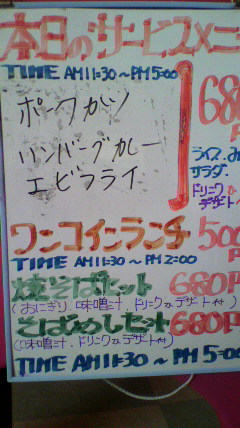 本日のサービスメニ
TIME AM11:30~PM5:00
ポークカツ
ハンバーグカレー
エビフライ
68
ライス、み
サラダ、
ドリンク&
デザート
ワンコインランチ 500
TIME AM11:30~PM2:00
焼そばセット 680円
(おにぎり、味噌汁、ドリンク&デザート付)
そばめしセット 680円
(味噌汁、ドリンク&デザート付)
TIME AM11:30~PM5:00